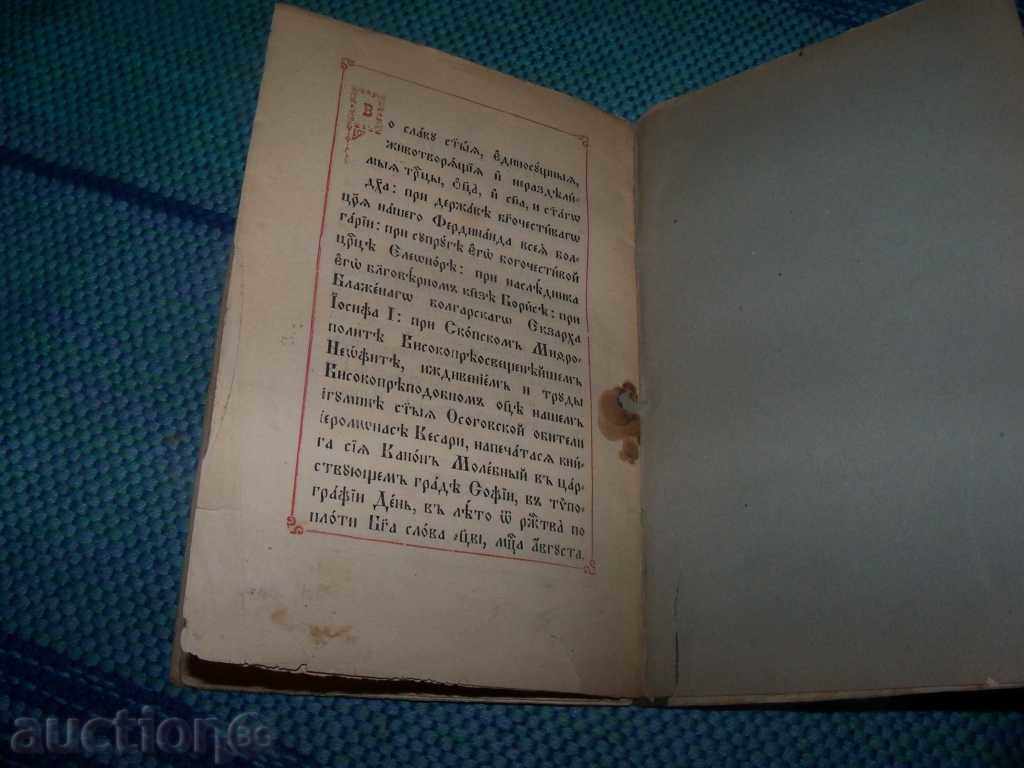 Во славу ст҃ыѧ, є҆диносꙋщныѧ,
животворѧщїѧ и҆ нераздѣли-
мыѧ трⷪ҇цы, ѻ҆ц҃а, и҆ сн҃а, и ст҃агѡ
дх҃а: при державѣ бг҃очестивагѡ
цр҃ѧ нашего Фердинанда всеѧ бол-
гарїи: при сꙋпрꙋгѣ є҆гѡ̀ богочестивой
цр҃ицѣ Елеѡнорѣ: при наслѣдника
є҆гѡ̀ бл҃говѣрномъ кн҃зѣ Борисѣ: при
Блаженагѡ болгарскагѡ Екзарха
І҆осифа І: при Скопскомъ Митро-
политѣ Високопрѣосвещеннѣйшемъ
Неѡфитѣ, иждивенїемъ и трꙋды
Високопрѣподобномъ ѻ҆ц҃ѣ нашемъ
игꙋменѣ ст҃ыѧ Осоговской обители
іеромонасѣ Кесари, напечатасѧ кни-
га сїѧ Канонъ Молебный въ цар-
ствꙋющемъ градѣ Софїи, въ тѵпо-
графїи День, въ лѣто ѿ рж҃тва по
плоти Бг҃а слова ҂ацві, мц҃а аѵгꙋста.
auction66